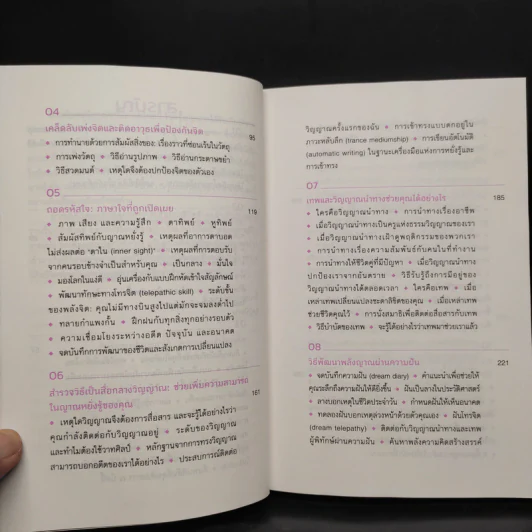 04
เคล็ดลับเพ่งจิตและติดอาวุธเพื่อป้องกันจิต 95
การทำนายด้วยการสัมผัสสิ่งของ: เรื่องราวที่ซ่อนเร้นในวัตถุ
การเพ่งวัตถุ วิธีอ่านรูปภาพ วิธีอ่านกระดาษขยำ
วิธีสวดมนต์ เหตุใดจึงต้องปกป้องจิตของตัวเอง
05
ถอดรหัสใจ: ภาษาใจที่ถูกเปิดเผย 119
ภาพ เสียง และความรู้สึก ตาทิพย์ หูทิพย์
สัมผัสทิพย์กับญาณหยั่งรู้ เหตุผลที่อาการตาบอด
ไม่ส่งผลต่อ "ตาใน (inner sight)" เหตุผลที่การตอบรับ
จากคนรอบข้างจำเป็นสำหรับคุณ เป็นกลาง มั่นใจ
มองโลกในแง่ดี อุ่นเครื่องกับแบบฝึกหัดเข้าใจสัญลักษณ์
พัฒนาทักษะทางโทรจิต (telepathic skill) ระดับชั้น
ของพลังจิต: คุณไม่มีทางบินสูงไปแต่มักจะจมลงต่ำไป
ทลายกำแพงกั้น ฝึกฝนกับทุกสิ่งทุกอย่างรอบตัว
ความเชื่อมโยงระหว่างอดีต ปัจจุบัน และอนาคต
จดบันทึกการพัฒนาของชีวิตและสังเกตการเปลี่ยนแปลง
06
สำรวจวิธีเป็นสื่อกลางวิญญาณ: ช่วยเพิ่มความสามารถ
ในญาณหยั่งรู้ของคุณ 161
เหตุใดวิญญาณจึงต้องการสื่อสาร และจะรู้ได้อย่างไรว่า
คุณกำลังติดต่อกับวิญญาณอยู่ ระดับของวิญญาณ
และทำไมต้องใช้วาทศิลป์ หลักฐานจากการทรงวิญญาณ
สามารถบอกอดีตของเราได้อย่างไร ประสบการณ์ติดต่อ
วิญญาณครั้งแรกของฉัน การเข้าทรงแบบตกอยู่ใน
ภาวะหลับลึก (trance mediumship) การเขียนอัตโนมัติ
(automatic writing) ในฐานะเครื่องมือแห่งการหยั่งรู้และ
การเข้าทรง
07
เทพและวิญญาณนำทางช่วยคุณได้อย่างไร 185
ใครคือวิญญาณนำทาง การนำทางเรื่องอาชีพ
เมื่อวิญญาณนำทางเป็นครูแห่งธรรมวิญญาณของเรา
เมื่อวิญญาณนำทางเฝ้าดูพฤติกรรมของพวกเรา
การนำทางเรื่องความสัมพันธ์กับคนในที่ทำงาน
การนำทางให้ชีวิตคู่ที่มีปัญหา เมื่อวิญญาณนำทาง
ปกป้องเราจากอันตราย วิธีรับรู้ถึงการมีอยู่ของ
วิญญาณนำทางได้ตลอดเวลา ใครคือเทพ เมื่อ
เหล่าเทพเปลี่ยนแปลงชะตาลิขิตของคุณ เมื่อเหล่าเทพ
ช่วยชีวิตคุณไว้ การนั่งสมาธิเพื่อติดต่อสื่อสารกับเทพ
วิธีบำบัดของเทพ จะรู้ได้อย่างไรว่าเทพมาช่วยเราแล้ว
08
วิธีพัฒนาพลังญาณผ่านความฝัน 221
จดบันทึกความฝัน (dream diary) คำแนะนำเพื่อช่วยให้
คุณระลึกถึงความฝันได้ดียิ่งขึ้น ฝันเป็นลางในประวัติศาสตร์
ลางบอกเหตุในชีวิตประจำวัน กำหนดฝันให้เห็นอนาคต
ทดลองฝันบอกเหตุล่วงหน้าด้วยตัวคุณเอง ฝันโทรจิต
(dream telepathy) ติดต่อกับวิญญาณนำทางและเทพ
ผู้พิทักษ์ผ่านความฝัน ค้นหาพลังความคิดสร้างสรรค์